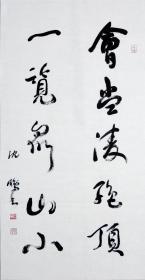 會當凌絕頂
一覽眾山小
沈鵬